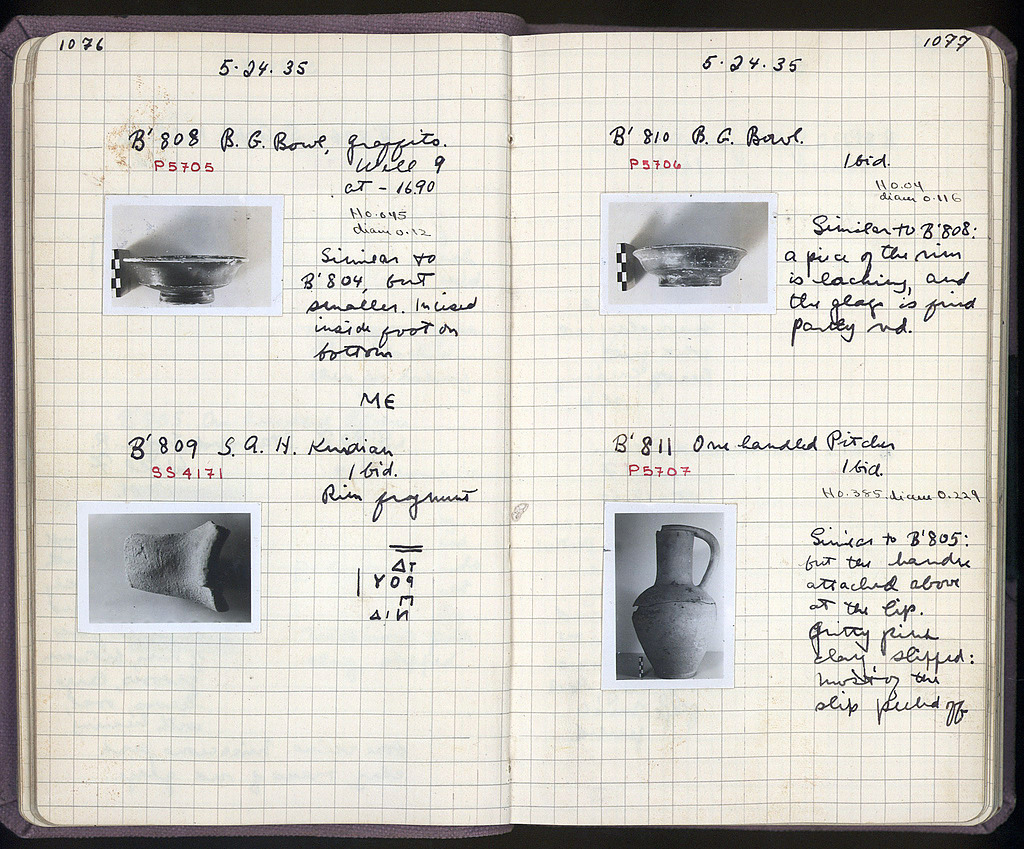 1076
5·24·35
B'808 B. G. Bowl, graffito.
P5705
Well 9
at -16.90
H 0.045
diam 0.12
Similar to
B'804, but
smaller. Incised
inside foot on
bottom
ME
B'809 S. A. H. Knidian
SS4171
Ibid.
Rim fragment
ΔΓ
1077
5·24·35
B'810 B. G. Bowl.
P5706
Ibid.
H 0.04
diam 0.116
Similar to B'808:
a piece of the rim
is lacking, and
the glaze is fired
partly red.
B'811 One handled Pitcher
P5707
Ibid.
H 0.385, diam 0.229
Similar to B'805:
but the handle
attached above
at the lip.
Gritty pink
clay slipped:
most of the
slip peeled off